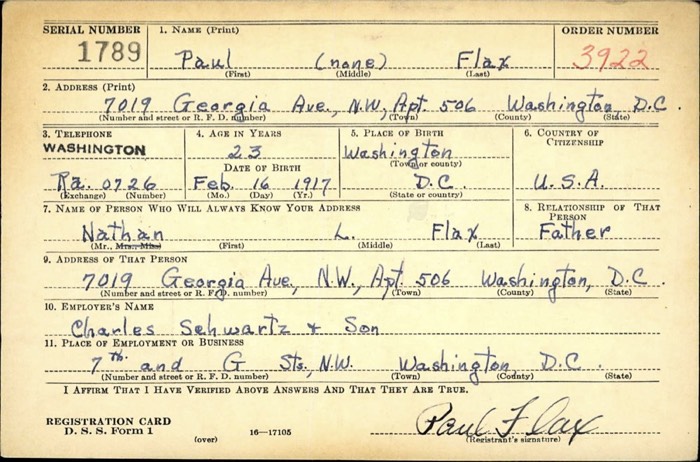 SERIAL NUMBER 1. NAME (Print) ORDER NUMBER
1789 Paul (none) Flax 3922
(First) (Middle) (Last)
2. ADDRESS (Print)
7019 Georgia Ave., N.W., Apt. 506 Washington, D.C.
(Number and street or R. F. D. number) (Town) (County) (State)
3. TELEPHONE 4. AGE IN YEARS 5. PLACE OF BIRTH 6. COUNTRY OF CITIZENSHIP
WASHINGTON 23 Washington
DATE OF BIRTH (Town or county)
Ra. 0726 Feb. 16 1917 D.C. U.S.A.
(Exchange) (Number) (Mo.) (Day) (Yr.) (State or country)
7. NAME OF PERSON WHO WILL ALWAYS KNOW YOUR ADDRESS 8. RELATIONSHIP OF THAT PERSON
Nathan L. Flax Father
(Mr., Mrs., Miss) (First) (Middle) (Last)
9. ADDRESS OF THAT PERSON
7019 Georgia Ave., N.W., Apt. 506 Washington, D.C.
(Number and street or R. F. D. number) (Town) (County) (State)
10. EMPLOYER'S NAME
Charles Schwartz & Son
11. PLACE OF EMPLOYMENT OR BUSINESS
7th and G Sts., N.W. Washington D.C.
(Number and street or R. F. D. number) (Town) (County) (State)
I AFFIRM THAT I HAVE VERIFIED ABOVE ANSWERS AND THAT THEY ARE TRUE.
REGISTRATION CARD
D. S. S. Form 1 (over) 16—17105 Paul Flax
(Registrant's signature)